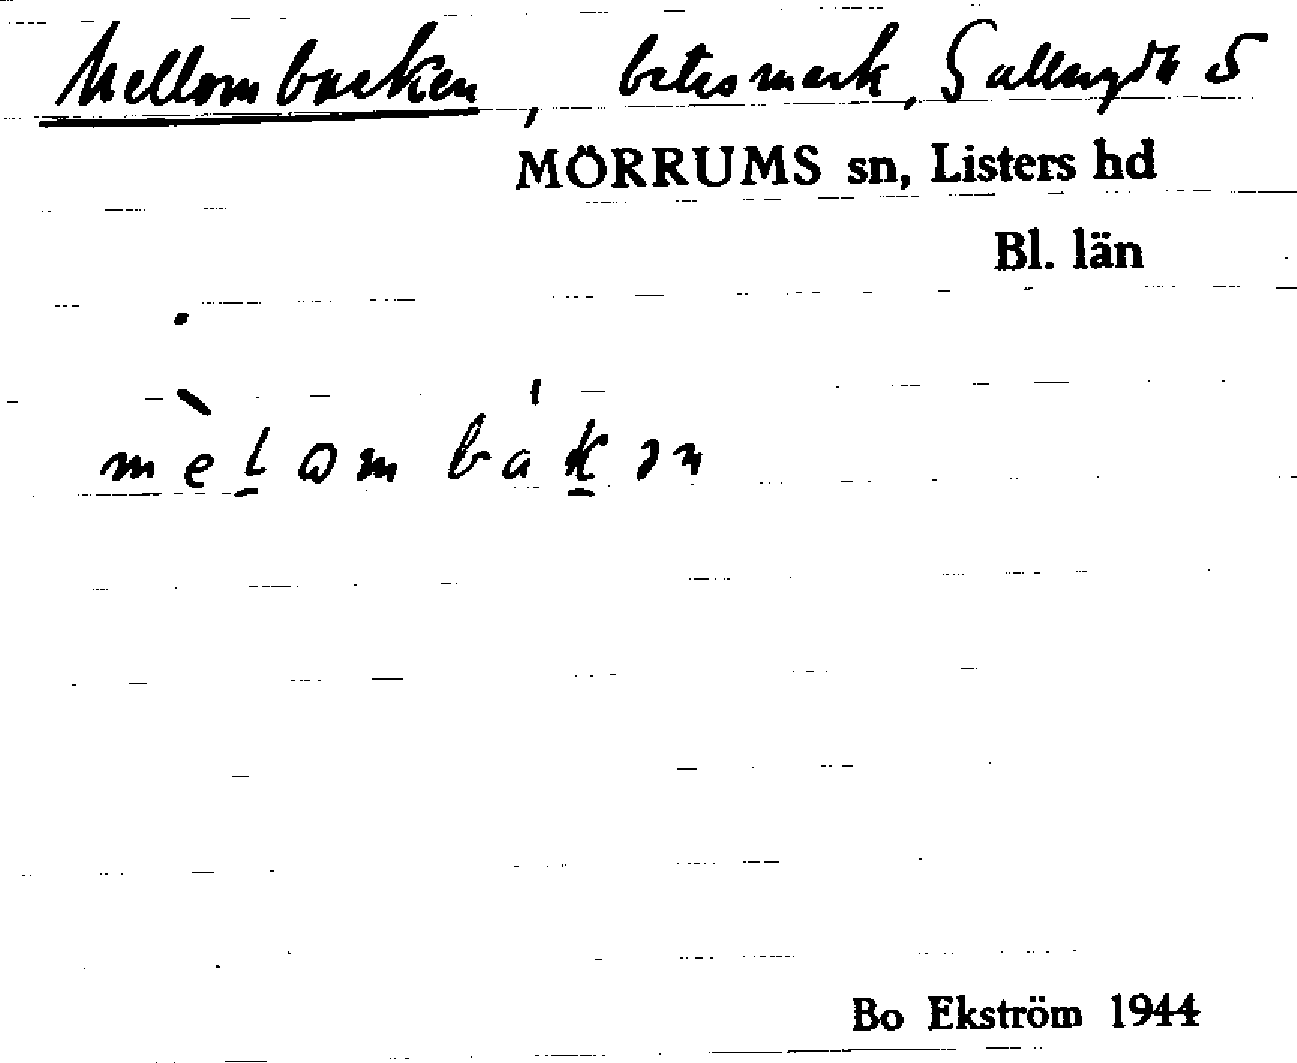 Mellombacken, betesmark, Sallerydh 5
MÖRRUMS sn, Listers hd
Bl. län
mèlombákən
Bo Ekström 1944